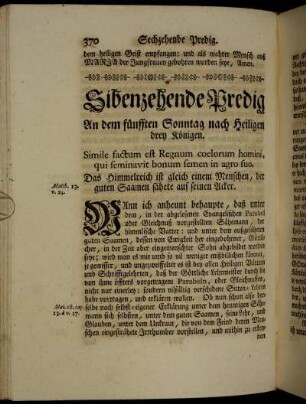 370 Sechzehende Predig.
dem heiligen Geist empfangen: und als wahrer Mensch auß
MARJA der Jungfrauen gebohren worden seye, Amen.
Sibenzehende Predig
An dem fünfften Sonntag nach Heiligen
drey Königen.
Simile factum est Regnum coelorum homini,
qui seminavit bonum semen in agro suo.
Das Himmelreich ist gleich einem Menschen, der
guten Saamen sähete auf seinen Acker.
Matth. 13.
v. 24.
WAnn ich anheunt behaupte, daß unter
dem, in der abgelesenen Evangelischen Parabel
oder Gleichnuß vorgestellten Säemann, der
himmelische Vatter: und unter dem außgesäeten
guten Saamen, dessen von Ewigkeit her eingebohrner, Göttlicher,
in der Zeit aber eingemenschter Sohn abgebildet werde
seye; wird man es mir umb so vil weniger mißbillichen können,
je gewisser, und ungezweiffelter es ist bey allen heiligen Vättern
und Schrifftgelehrten, daß der Göttliche Lehrmeister durch die
von ihm öffters vorgetragene Parabeln, oder Gleichnussen,
nicht nur einerley: sondern vilfältig verschidene Sitten-Lehren
habe vortragen, und erklären wollen. Ob nun schon also derselbe
nach selbst eigener Erklärung unter dem heuntigen Säemann
sich selbsten, unter dem guten Saamen, seine Lehr, und
Glauben, unter dem Unkraut, die von dem Feind deren Menschen
eingesträhete Irrthumber vorstellen, und mithin zu erkennen
Mat. cit. cap.
13. à v. 37.